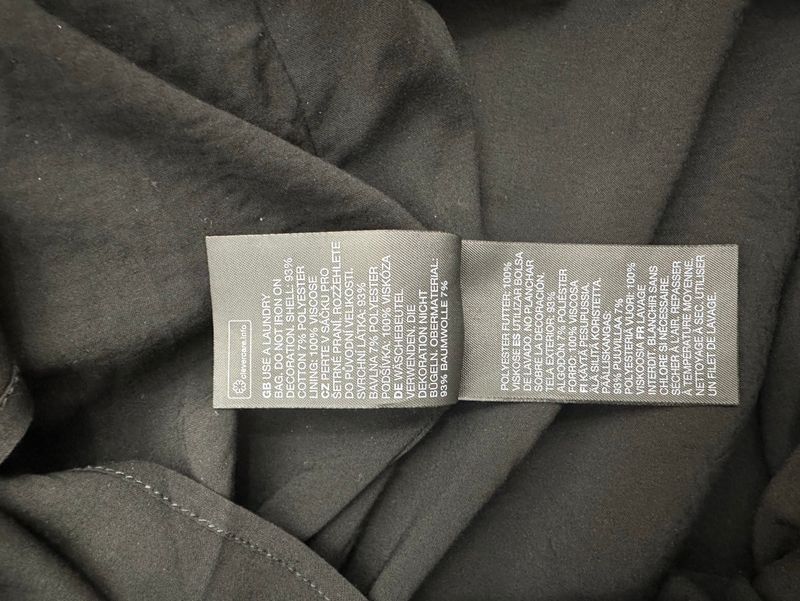 clevercare.info
GB USE A LAUNDRY
BAG. DO NOT IRON ON
DECORATION. SHELL: 93%
COTTON 7% POLYESTER
LINING: 100% VISCOSE
CZ PERTE V SÁČKU PRO
ŠETRNÉ PRANÍ. POZŽEHLETE
DO PŮVODNÍ VELIKOSTI.
SVRCHNÍ LÁTKA: 93%
BAVLNA 7% POLYESTER
PODŠÍVKA: 100% VISKÓZA
DE WÄSCHEBEUTEL
VERWENDEN. DIE
DEKORATION NICHT
BÜGELN. OBERMATERIAL:
93% BAUMWOLLE 7%
POLYESTER FUTTER: 100%
VISKOSE ES UTILIZAR BOLSA
DE LAVADO. NO PLANCHAR
SOBRE LA DECORACIÓN.
TELA EXTERIOR: 93%
ALGODÓN 7% POLIÉSTER
FORRO: 100% VISCOSA
FI KÄYTÄ PESUPUSSIA.
ÄLÄ SILITÄ KORISTETTA.
PÄÄLLISKANGAS:
93% PUUVILLA 7%
POLYESTERIA VUORI: 100%
VISKOOSIA FR LAVAGE
INTERDIT. BLANCHIR SANS
CHLORE SI NÉCESSAIRE.
SÉCHER À L'AIR. REPASSER
À TEMPÉRATURE MOYENNE.
NETTOYAGE À SEC. UTILISER
UN FILET DE LAVAGE.